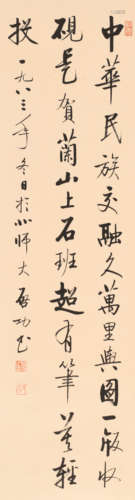 中華民族交融久萬里輿圖一版收
硯是賀蘭山上石班超有筆莫輕
投 一九八三年冬日於北師大 啟功书